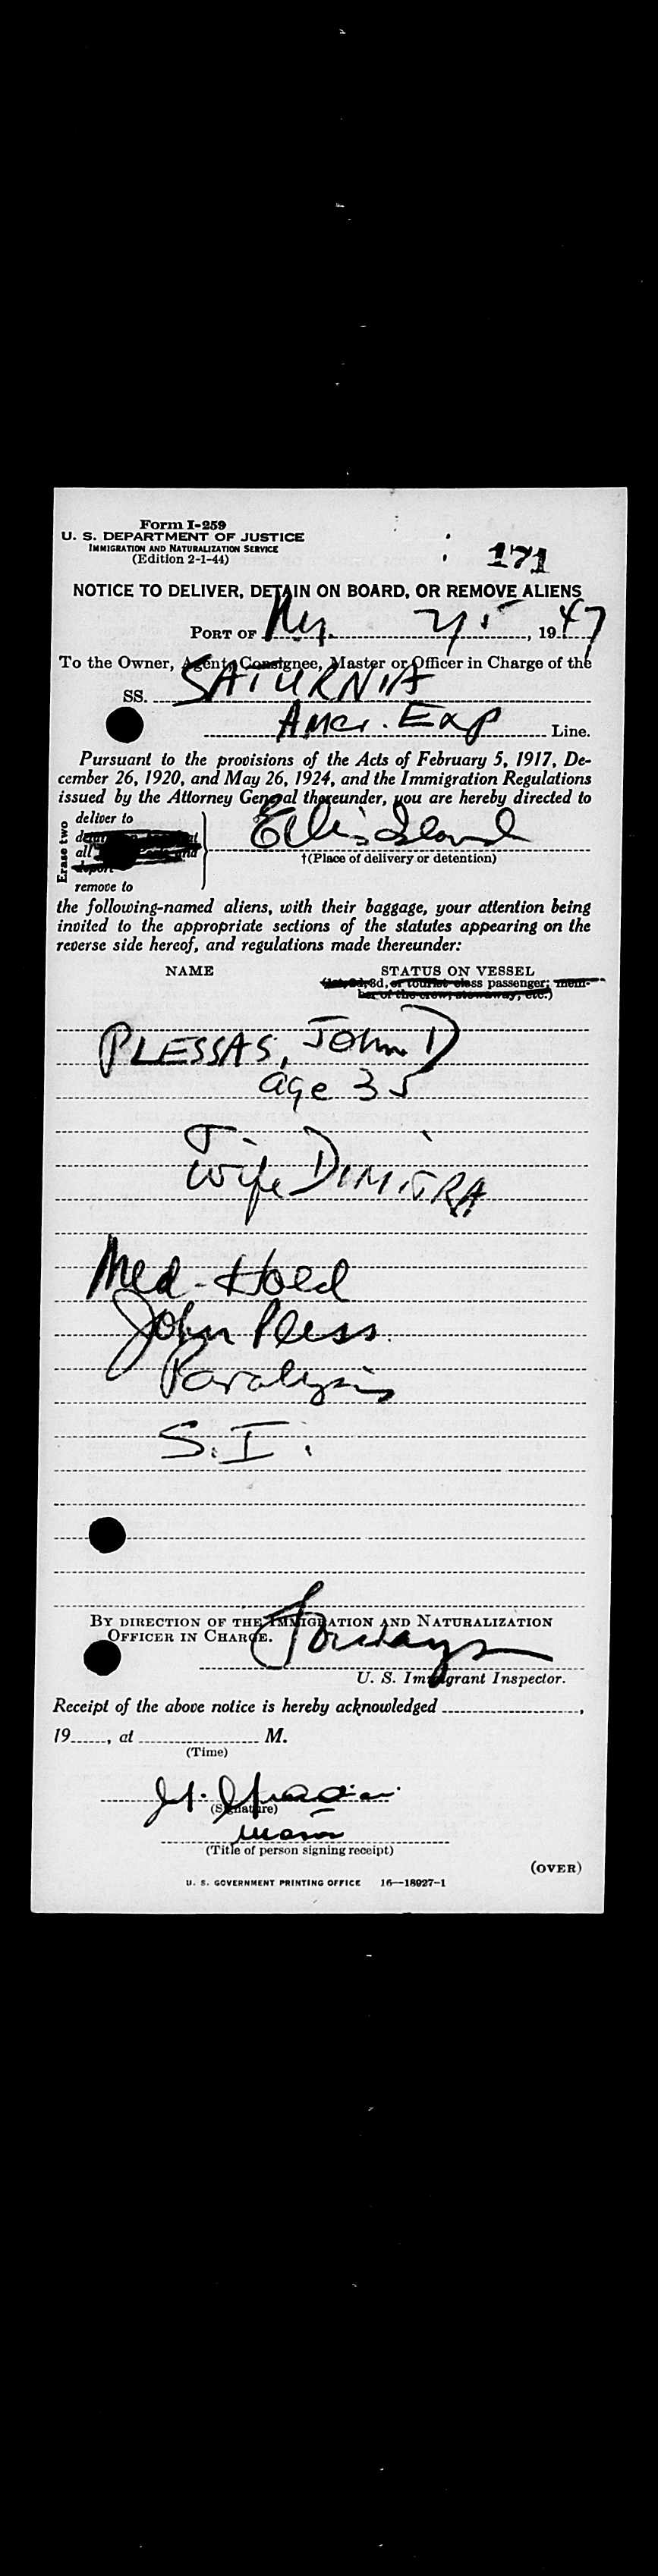 Form I-259
U. S. DEPARTMENT OF JUSTICE
IMMIGRATION AND NATURALIZATION SERVICE
(Edition 2-1-44)
171
NOTICE TO DELIVER, DETAIN ON BOARD, OR REMOVE ALIENS
PORT OF Ny. , 1947
To the Owner, Agent, Consignee, Master or Officer in Charge of the
SS. SATURNIA
Amer. Exp Line.
Pursuant to the provisions of the Acts of February 5, 1917, De-
cember 26, 1920, and May 26, 1924, and the Immigration Regulations
issued by the Attorney General thereunder, you are hereby directed to
Erase two
deliver to
Ellis Island
†(Place of delivery or detention)
deport
remove to
the following-named aliens, with their baggage, your attention being
invited to the appropriate sections of the statutes appearing on the
reverse side hereof, and regulations made thereunder:
NAME STATUS ON VESSEL
(1st, 2d, 3d, or tourist class passenger; mem-
ber of the crew, stowaway, etc.)
PLESSAS, John D
age 35
Wife DIMITRA
Med-Hold
John Pless.
Paralysis
S.I.
BY DIRECTION OF THE IMMIGRATION AND NATURALIZATION
OFFICER IN CHARGE.
U. S. Immigrant Inspector.
Receipt of the above notice is hereby acknowledged ,
19 , at M.
(Time)
(Signature)
(Title of person signing receipt)
(OVER)
U. S. GOVERNMENT PRINTING OFFICE 16—18927-1